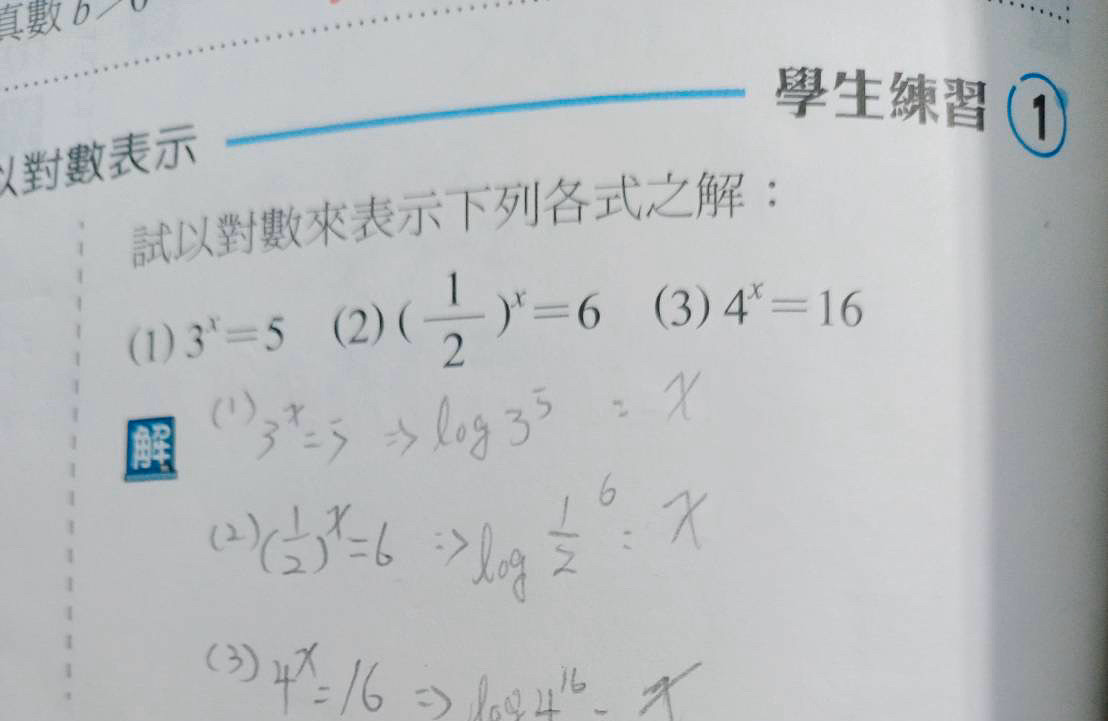 真數 b > 0
學生練習 1
以對數表示
試以對數來表示下列各式之解：
(1) 3ˣ=5 (2) (1/2)ˣ=6 (3) 4ˣ=16
解
(1) 3ˣ=5 ⇒ log 3⁵ = x
(2) (1/2)ˣ=6 ⇒ log 1/2 ⁶ = x
(3) 4ˣ=16 ⇒ log 4¹⁶ = x